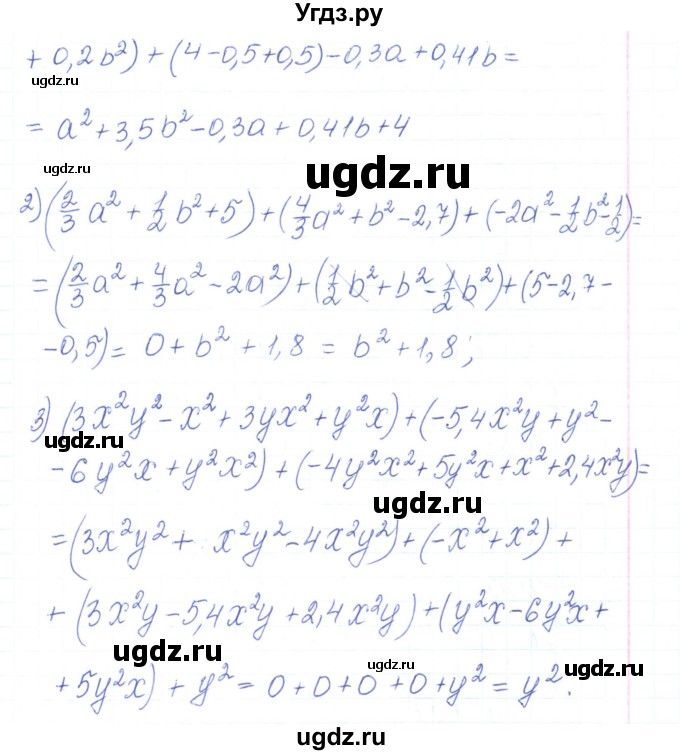 Угдз.ру
+ 0,2b²) + (4 − 0,5 + 0,5) − 0,3a + 0,41b =
ugdz.ru
= a² + 3,5b² − 0,3a + 0,41b + 4
ugdz.ru
ugdz.ru
2) (2/3 a² + 1/2 b² + 5) + (4/3 a² + b² − 2,7) + (−2a² − 1/2 b² − 1/2) =
= (2/3 a² + 4/3 a² − 2a²) + (1/2 b² + b² − 1/2 b²) + (5 − 2,7 −
− 0,5) = 0 + b² + 1,8 = b² + 1,8;
3) (3x²y² − x² + 3yx² + y²x) + (−5,4x²y + y² −
ugdz.ru
− 6y²x + y²x²) + (−4y²x² + 5y²x + x² + 2,4x²y) =
ugdz.ru
= (3x²y² + x²y² − 4x²y²) + (−x² + x²) +
+ (3x²y − 5,4x²y + 2,4x²y) + (y²x − 6y²x +
ugdz.ru
ugdz.ru
+ 5y²x) + y² = 0 + 0 + 0 + 0 + y² = y².
ugdz.ru